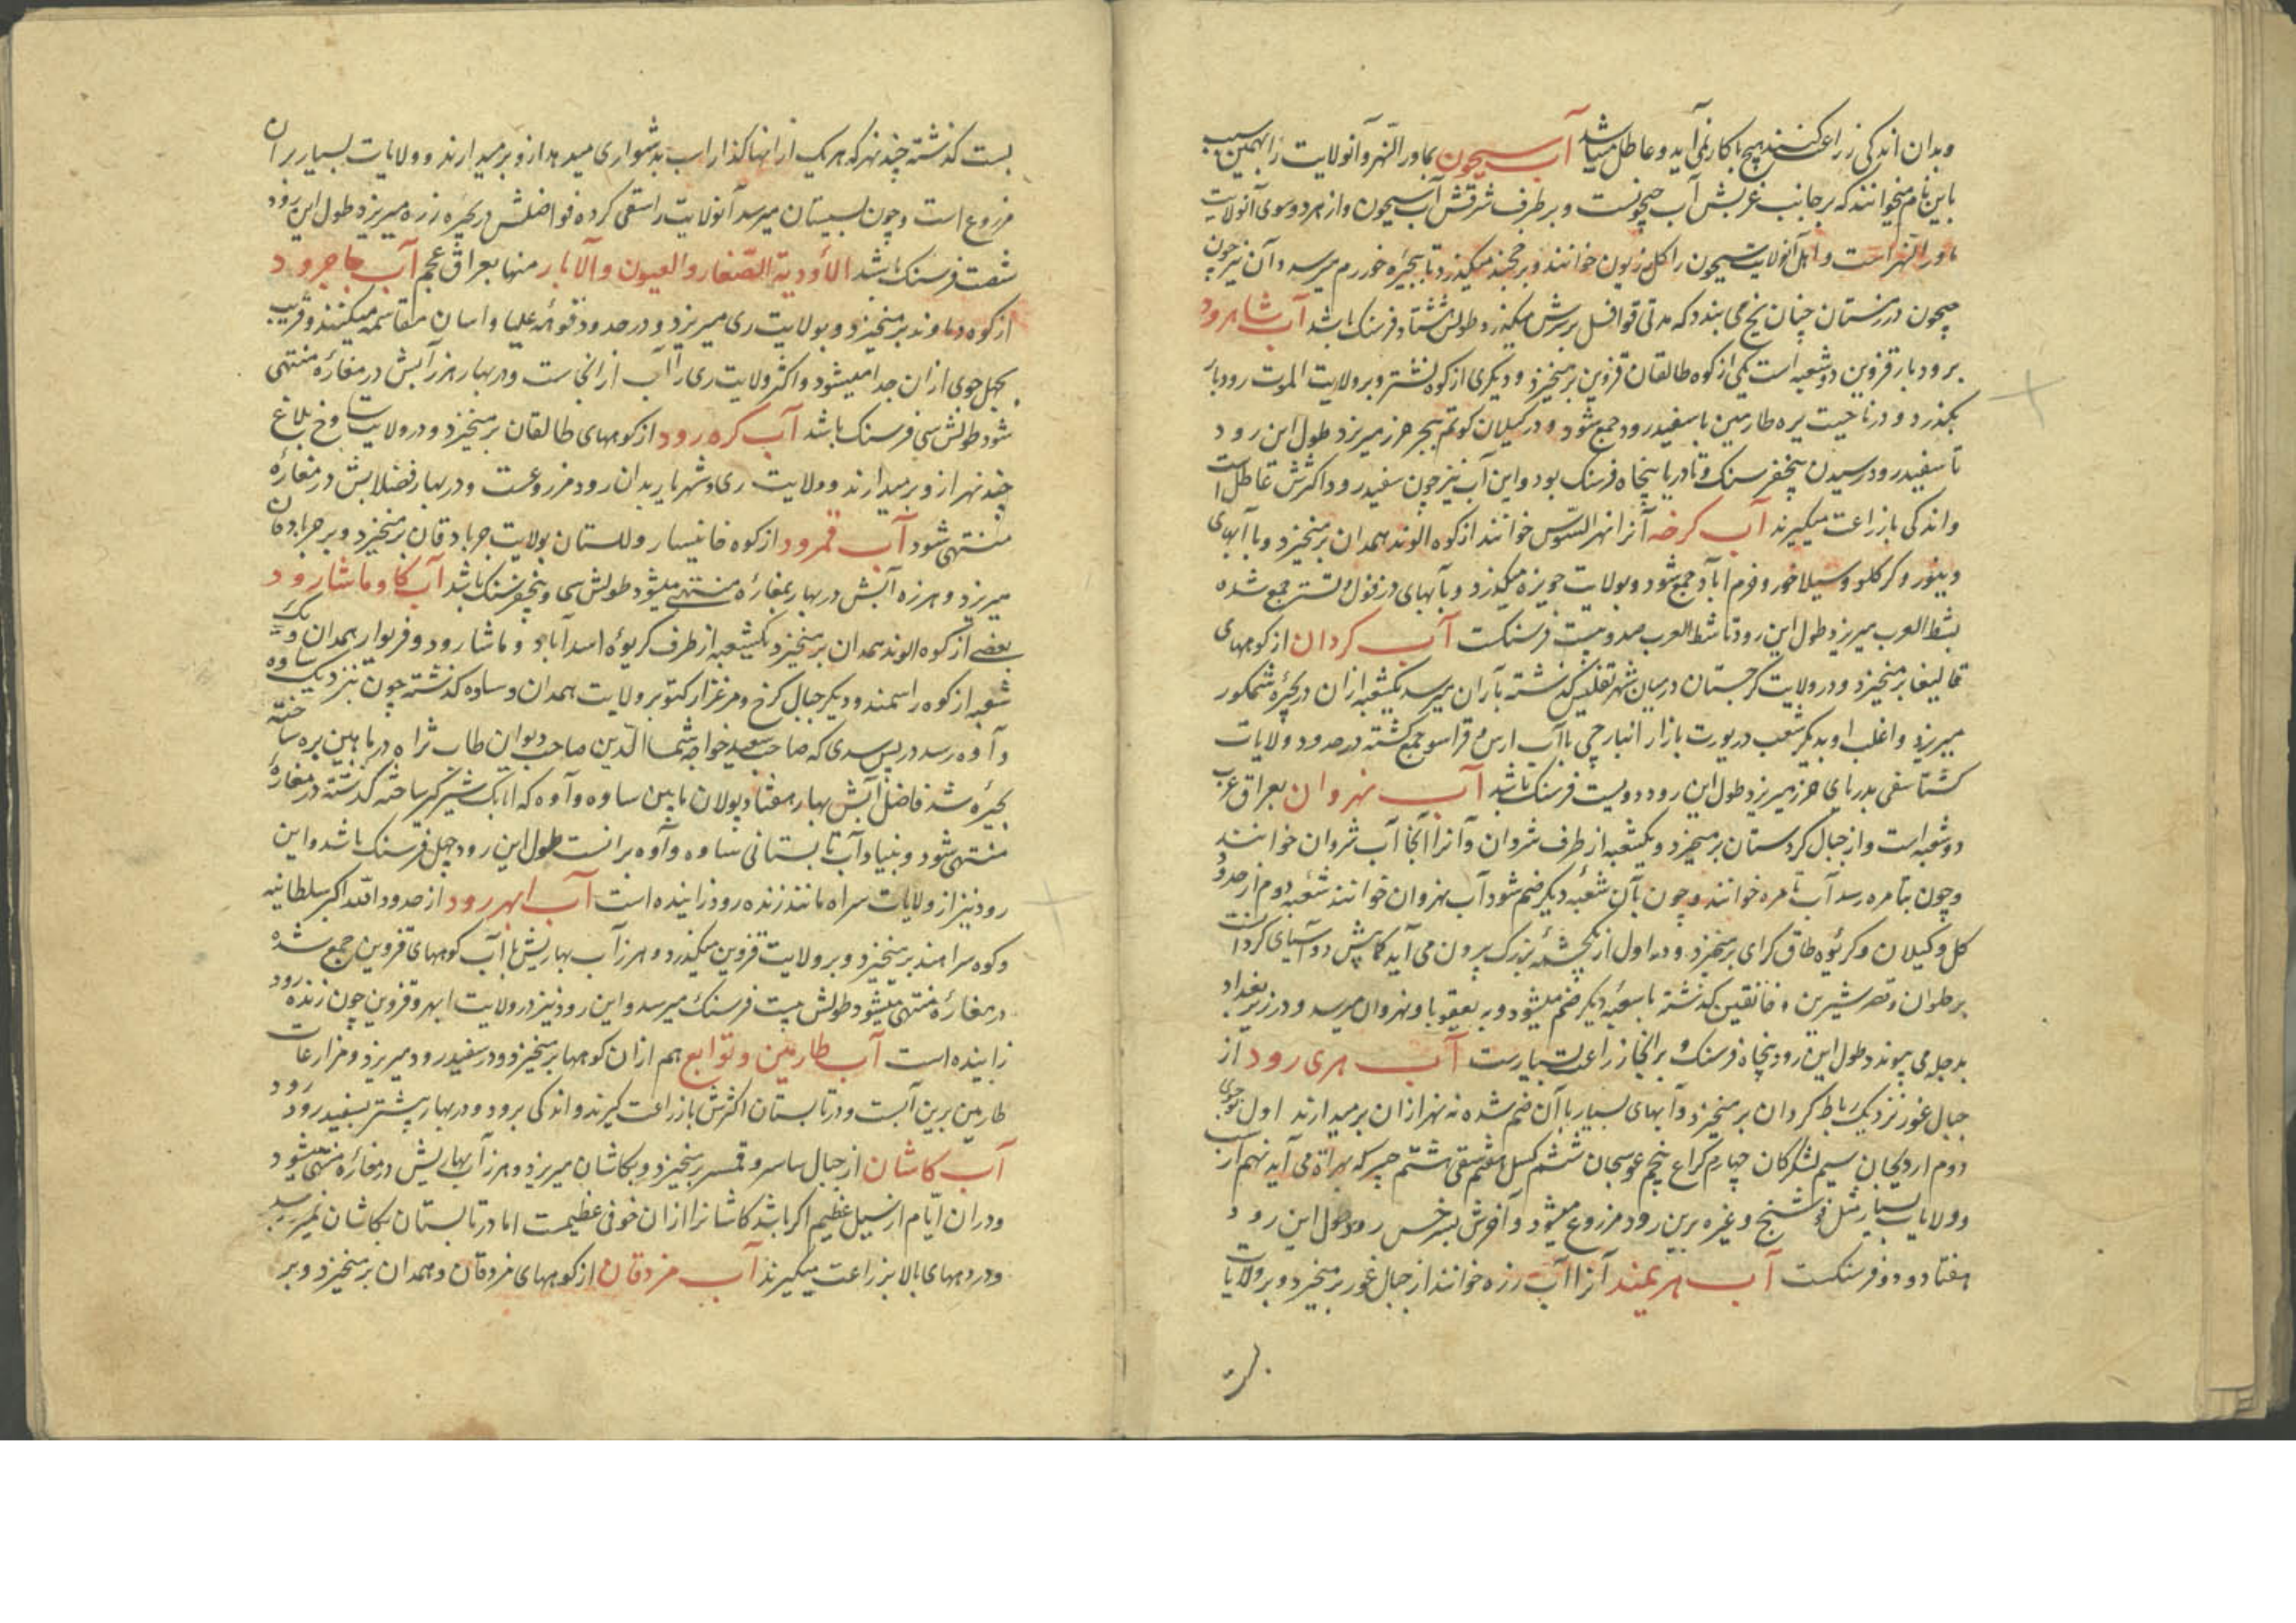 وبدان اندکی زراعت کنند هیچ با کار نمی‌آید و عاطل میباشد آب سیحون بماورالنهر و آنولایت را بهمین سبب
باین نام میخوانند که بر جانب غربش آب جیحونست و بر طرف شرقش آب سیحون و از هر دو سوی آنولایت
ماورالنهر است و اهل آنولایت سیحون را کل زریون خوانند و بر خجند میکذرد تا ببحیره خوارزم میرسد و آن نیز چون
جیحون در زمستان چنان یخ می بندد که مدتی قوافل بر سرش میکذرد طولش هشتاد فرسنک باشد آب شاهرود
برودبار قزوین دو شعبه است یکی از کوه طالقان قزوین برمیخیزد و دیکری از کوه نشتر و بر ولایت الموت رودبار
بکذرد و در ناحیت بره طارمین با سفیدرود جمع شود و در کیلان کوتم ببحر خزر میریزد طول این رود
تا سفیدرود رسیدن پنجفرسنک و تا دریا پنجاه فرسنک بود و این آب نیز چون سفیدرود اکثرش عاطل است
و اندکی بازراعت میکیرند آب کرخه آنرا نهرالسوس خوانند از کوه الوند همدان برمیخیزد و با آبهای
دینور و کرکلو و سیلاخور و خرم آباد جمع شود و بولایت حویزه میکذرد و بآبهای دزفول و تستر جمع شده
بشط العرب میریزد طول این رود تا شط العرب صد و بیست فرسنکست آب کردان از کوههای
قالیقا برمیخیزد و در ولایت کرجستان در میان شهر تفلیس کذشته بآران میرسد یکشعبه ازان در بحیره شمکور
میریزد و اغلب او بدیکر شعب در یورت بازار انبارچی با آب ارس و قراسو جمع کشته در حدود ولایات
کشتاسفی بدریای خزر میریزد طول این رود دویست فرسنک باشد آب نهروان بعراق عرب
دو شعبه است و از جبال کردستان برمیخیزد و یکشعبه از طرف شروان و آنرا آنجا آب شروان خوانند
و چون بتامره رسد آب تامره خوانند و چون بآن شعبه دیکر ضم شود آب نهروان خوانند شعبه دوم از حدود
کل و کیلان و کریوه طاق کرای برمیخیزد و در اول از یکچشمه بزرک بیرون می آید کمابیش دو آسیای کردانست
بر حلوان و قصر شیرین و خانقین کذشته با شعبه دیکر ضم میشود و به بعقوبا و نهروان میرسد و در زیر بغداد
بدجله می پیوندد طول این رود پنجاه فرسنک و برانجا زراعت بسیارست آب هری رود از
جبال غور نزدیک رباط کردان برمیخیزد و آبهای بسیار با آن ضم شده نه نهر ازان برمیدارند اول جوی
دوم اردیجان سیم لشکرکان چهارم کراغ پنجم غوسجان ششم کسل هفتم سقی هشتم جیر که بهراة می آید نهم
و ولایات بسیار مثل فوشنج و غیره برین رود مزروع میشود و آخرش بسرخس رود طول این رود
هفتاد و دو فرسنکست آب هیرمند آنرا آب زره خوانند از جبال غور برمیخیزد و بر ولایات
بست کذشته چند نهر که هر یک از آنها کذار اب بدشواری میدهد ازو برمیدارند و ولایات بسیار بران
مزروع است و چون بسیستان میرسد آنولایت را سقی کرده فواضلش در بحیره زره میریزد طول این رود
شصت فرسنک باشد الأودیة الصغار والعیون والآبار منها بعراق عجم آب جاجرود
از کوه دماوند برمیخیزد و بولایت ری میریزد و در حدود قوهه علیا و اسان مقاسمه میکنند و قریب
بچهل جوی ازان جدا میشود و اکثر ولایت ری را آب ازانجاست و در بهار هرز آبش در مفازه منتهی
شود طولش سی فرسنک باشد آب کره رود از کوههای طالقان برمیخیزد و در ولایت ساوخ بلاغ
چند نهر ازو برمیدارند و ولایت ری و شهریار بدان رود مزروعست و در بهار فضلابش در مفازه
منتهی شود آب قمرود از کوه خانیسار و لرستان بولایت جرباذقان برمیخیزد و بر جرباذقان
میریزد و هرزه آبش در بهار بمفازه منتهی میشود طولش سی و پنجفرسنک باشد آب کاوماشارود
بعضی از کوه الوند همدان برمیخیزد یکشعبه از طرف کریوه اسدآباد و ماشارود و فریوار همدان و یک
شعبه از کوه راسمند و دیکر جبال کرخ و مرغزار کیتو بر ولایت همدان و ساوه کذشته چون بنزدیک ساوه
و آوه رسد در پس سدی که صاحب سعید خواجه شمس الدین صاحب دیوان طاب ثراه در مابین بره ساخته
بحیره شد فاضل آبش ببهار هفتاد پولان مابین ساوه و آوه که اتابک شیرکیر ساخته کذشته در مفازه
منتهی شود و بنیاد آب تابستانی ساوه و آوه برانست طول این رود چهل فرسنک باشد و این
رود نیز از ولایات سراه مانند زنده رود زاینده است آب ابهررود از حدود الله اکبر سلطانیه
و کوه سراهند برمیخیزد و بر ولایت قزوین میکذرد و هرز آب بهاریش با آب کوههای قزوین جمع شده
در مفازه منتهی میشود طولش بیست فرسنک میرسد و این رود نیز در ولایت ابهر و قزوین چون زنده رود
زاینده است آب طارمین و توابع هم ازان کوهها برمیخیزد و در سفیدرود میریزد و مزارعات
طارمین برین آبست و در تابستان اکثرش بازراعت کیرند و اندکی برود و در بهار بیشتر بسفیدرود رود
آب کاشان از جبال ساسر و قمسر برمیخیزد و بکاشان میریزد و هرز آب بهاریش در مفازه منتهی میشود
و دران ایام از سیل عظیم اکر باشد کاشانرا ازان خوفی عظیمست اما در تابستان بکاشان نمیرسد
و در دههای بالا بزراعت میکیرند آب مزدقان از کوههای مزدقان و همدان برمیخیزد و بر